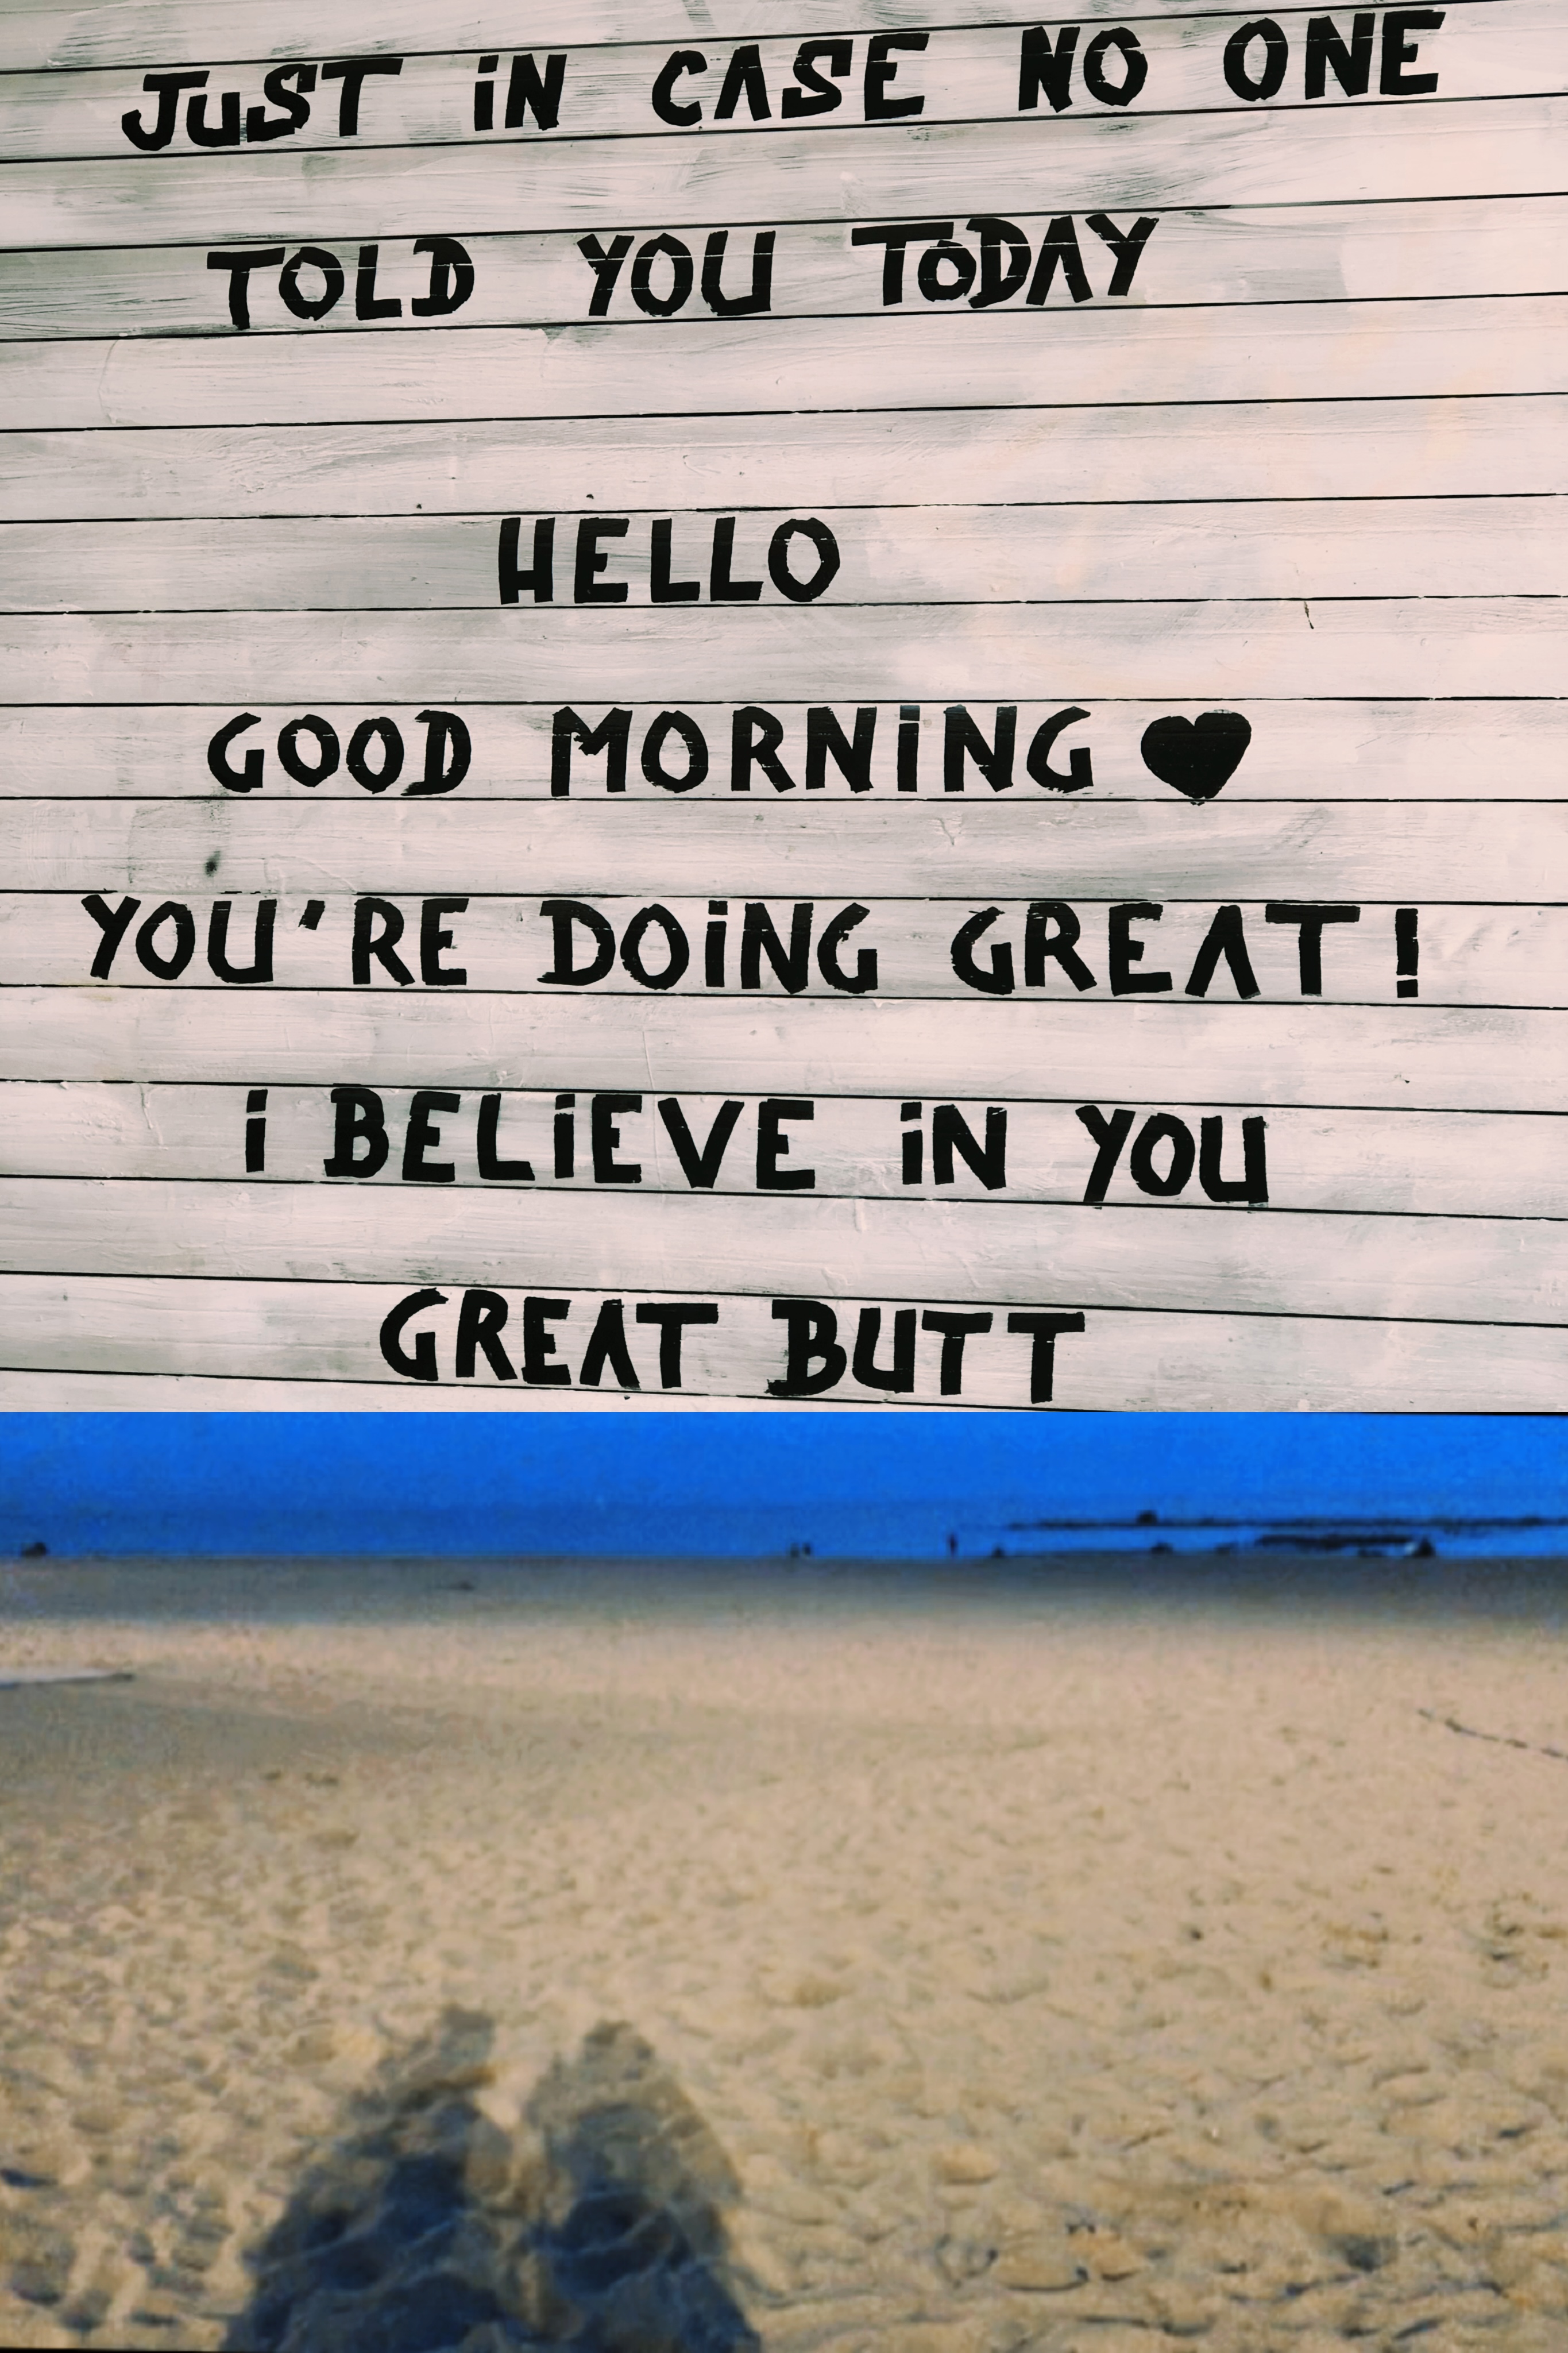 JuST iN CASE NO ONE
TOLD YOU ToDAY
HELLO
GOOD MORNiNG ♥
YOU'RE DOiNG GREAT!
i BELiEVE iN YOU
GREAT BUTT